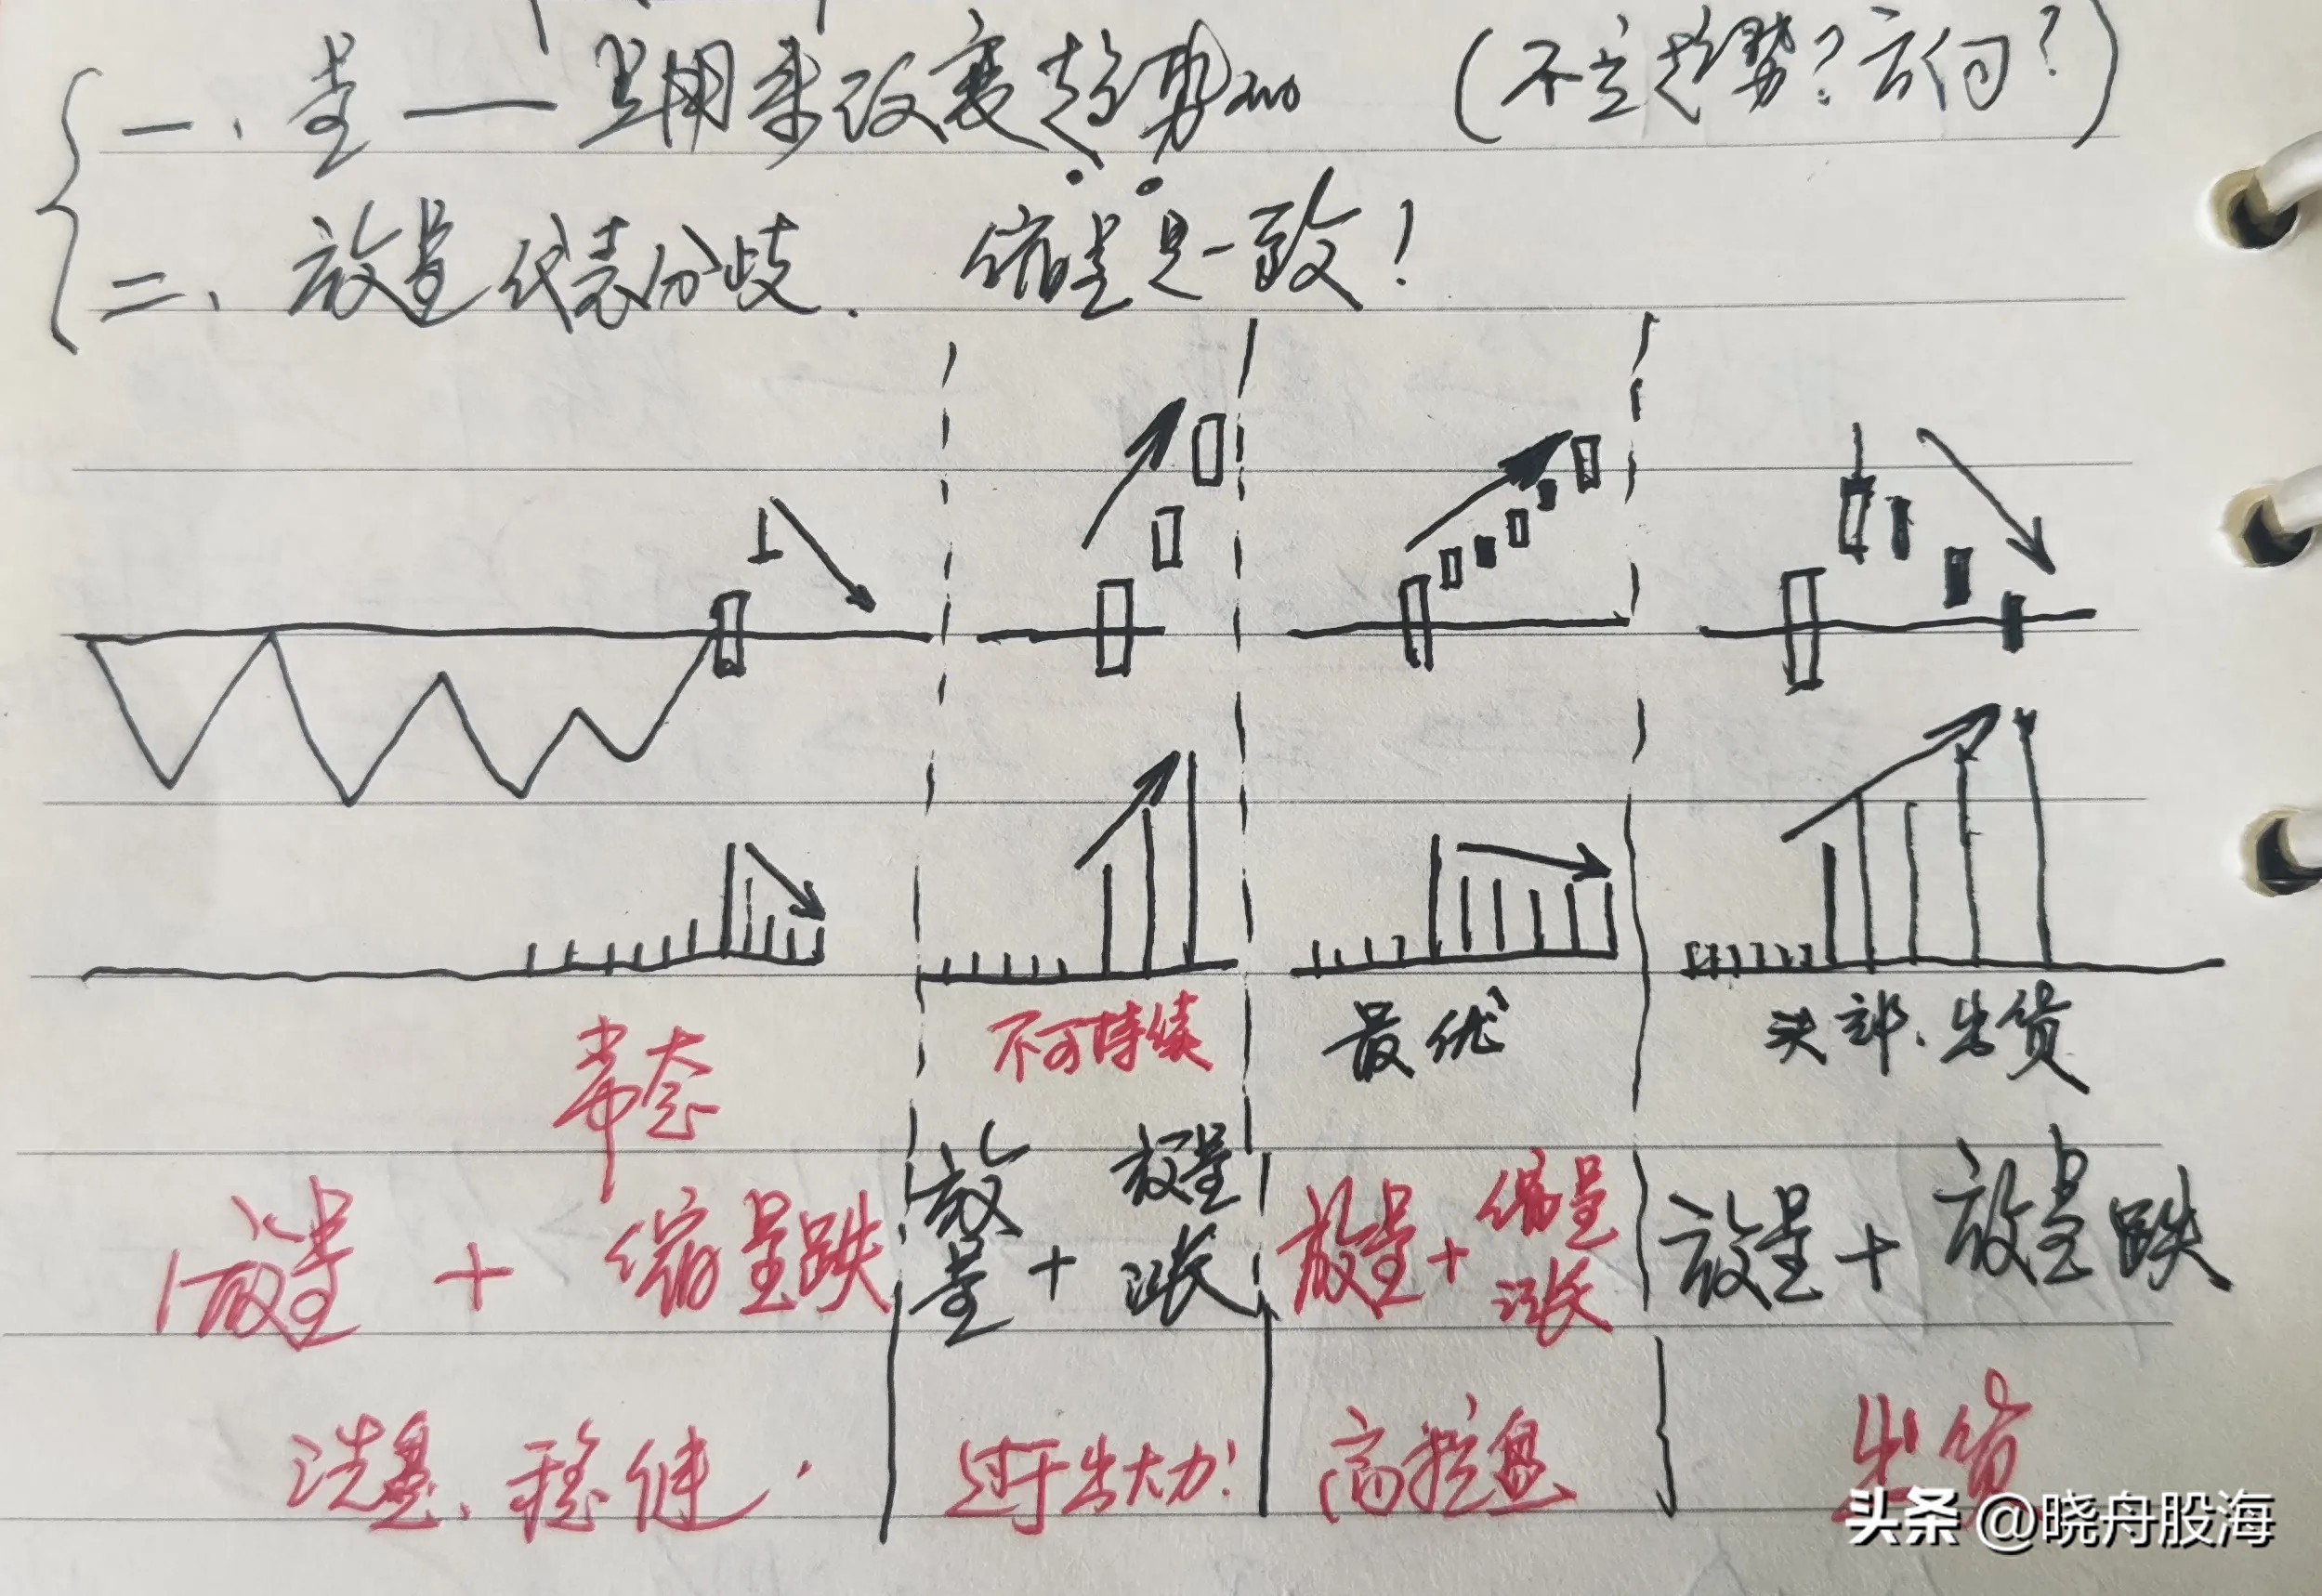 一、量——是用来改变趋势的 (不立趋势?方向?)
二、放量代表分歧. 缩量是一致!
常态 不可持续 最优 头部、出货
放量 + 缩量跌 放量 + 放量涨 放量 + 缩量涨 放量 + 放量跌
洗盘、稳健. 过于出大力! 高控盘 出货
头条 @晓舟股海